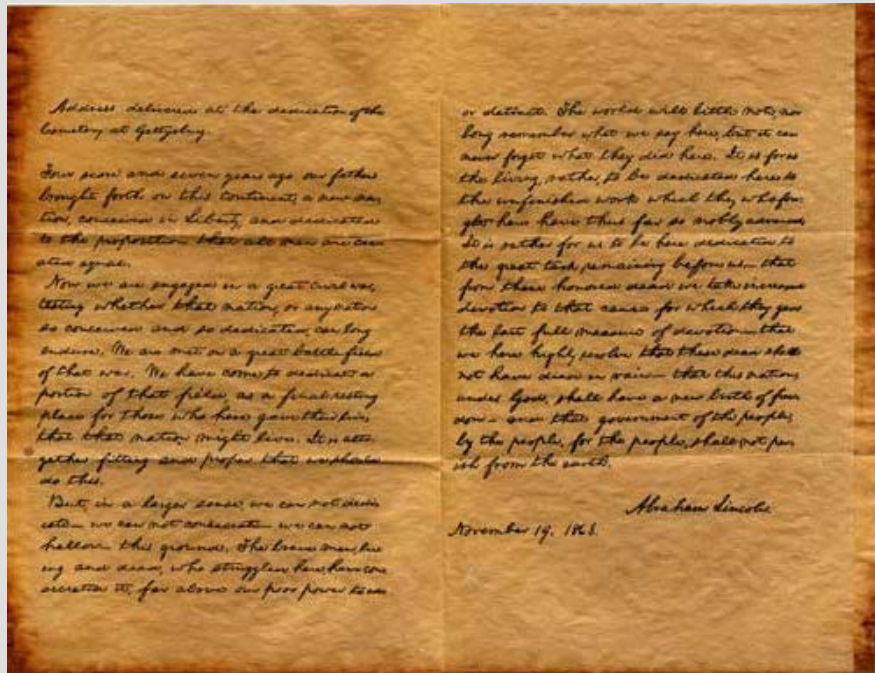 Address delivered at the dedication of the
Cemetery at Gettysburg.
Four score and seven years ago our fathers
brought forth on this continent, a new na-
tion, conceived in Liberty, and dedicated
to the proposition that all men are cre-
ated equal.
Now we are engaged in a great civil war,
testing whether that nation, or any nation
so conceived and so dedicated, can long
endure. We are met on a great battle field
of that war. We have come to dedicate a
portion of that field, as a final resting
place for those who here gave their lives
that that nation might live. It is alto-
gether fitting and proper that we should
do this.
But, in a larger sense, we can not dedi-
cate— we can not consecrate— we can not
hallow— this ground. The brave men, liv-
ing and dead, who struggled here, have con-
secrated it, far above our poor power to add
or detract. The world will little note, nor
long remember what we say here, but it can
never forget what they did here. It is for us
the living, rather, to be dedicated here to
the unfinished work which they who fou-
ght here have thus far so nobly advanced.
It is rather for us to be here dedicated to
the great task remaining before us— that
from these honored dead we take increased
devotion to that cause for which they gave
the last full measure of devotion— that
we here highly resolve that these dead shall
not have died in vain— that this nation,
under God, shall have a new birth of free-
dom— and that government of the people,
by the people, for the people, shall not per-
ish from the earth.
Abraham Lincoln.
November 19, 1863.